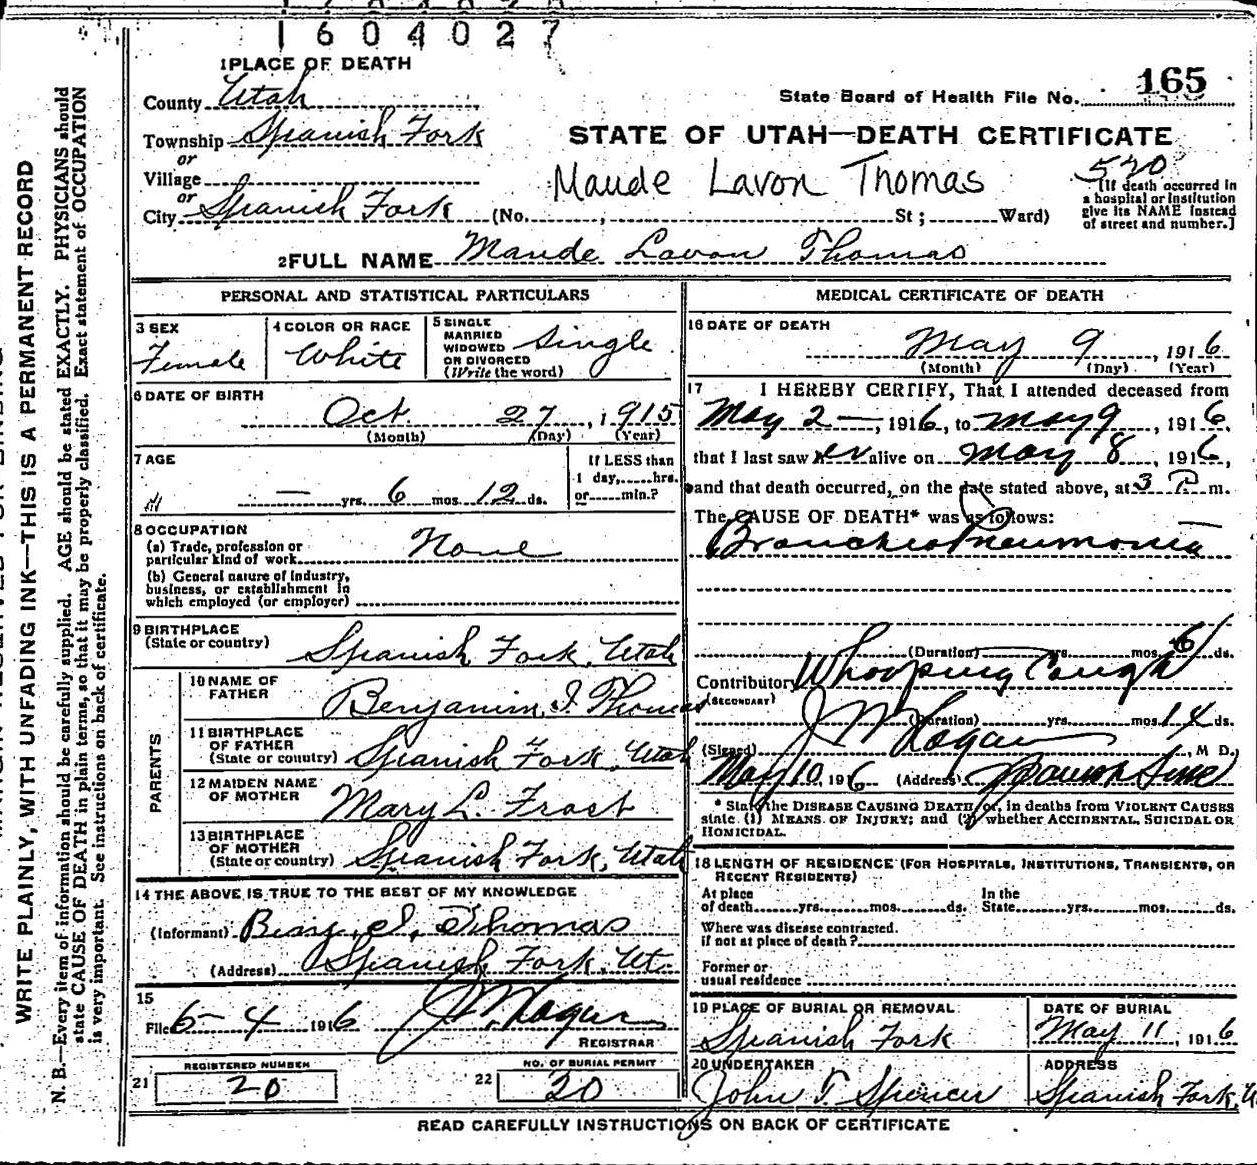 1604027
1 PLACE OF DEATH
County Utah
Township Spanish Fork
or
Village
or
City Spanish Fork (No. , St ; Ward)
State Board of Health File No. 165
STATE OF UTAH—DEATH CERTIFICATE
Maude Lavon Thomas
520
[If death occurred in
a hospital or institution
give its NAME instead
of street and number.]
2 FULL NAME Maude Lavon Thomas
PERSONAL AND STATISTICAL PARTICULARS
3 SEX
Female
4 COLOR OR RACE
White
5 SINGLE
MARRIED
WIDOWED
OR DIVORCED
(Write the word)
Single
6 DATE OF BIRTH
Oct. 27, 1915
(Month) (Day) (Year)
7 AGE
— yrs. 6 mos. 12 ds.
If LESS than
1 day, hrs.
or min.?
8 OCCUPATION
(a) Trade, profession or
particular kind of work None
(b) General nature of industry,
business, or establishment in
which employed (or employer)
9 BIRTHPLACE
(State or country)
Spanish Fork, Utah
PARENTS
10 NAME OF
FATHER
Benjamin I. Thomas
11 BIRTHPLACE
OF FATHER
(State or country) Spanish Fork, Utah
12 MAIDEN NAME
OF MOTHER
Mary L. Frost
13 BIRTHPLACE
OF MOTHER
(State or country) Spanish Fork, Utah
14 THE ABOVE IS TRUE TO THE BEST OF MY KNOWLEDGE
(Informant) Benj. I. Thomas
(Address) Spanish Fork, Ut.
15
Filed 6-4 1916 J W Hagan
REGISTRAR
21 REGISTERED NUMBER
20
22 NO. OF BURIAL PERMIT
20
MEDICAL CERTIFICATE OF DEATH
16 DATE OF DEATH
May 9, 1916
(Month) (Day) (Year)
17 I HEREBY CERTIFY, That I attended deceased from
May 2—, 1916, to May 9, 1916,
that I last saw er alive on May 8, 1916,
and that death occurred, on the date stated above, at 3 P. m.
The CAUSE OF DEATH* was as follows:
Broncheo Pneumonia
(Duration) yrs. mos. 6 ds.
Contributory Whooping Cough
(SECONDARY)
(Duration) yrs. mos. 14 ds.
(Signed) J W Hagan, M D.
May 10, 1916 (Address) Spanish
* State the DISEASE CAUSING DEATH, or, in deaths from VIOLENT CAUSES
state (1) MEANS OF INJURY; and (2) whether ACCIDENTAL, SUICIDAL OR
HOMICIDAL.
18 LENGTH OF RESIDENCE (FOR HOSPITALS, INSTITUTIONS, TRANSIENTS, OR
RECENT RESIDENTS)
At place
of death yrs. mos. ds.
In the
State yrs. mos. ds.
Where was disease contracted.
if not at place of death?
Former or
usual residence
19 PLACE OF BURIAL OR REMOVAL
Spanish Fork
DATE OF BURIAL
May 11, 1916
20 UNDERTAKER
John T. Spencer
ADDRESS
Spanish Fork, U
READ CAREFULLY INSTRUCTIONS ON BACK OF CERTIFICATE
WRITE PLAINLY, WITH UNFADING INK—THIS IS A PERMANENT RECORD
N. B.—Every item of information should be carefully supplied. AGE should be stated EXACTLY. PHYSICIANS should
state CAUSE OF DEATH in plain terms, so that it may be properly classified. Exact statement of OCCUPATION
is very important. See instructions on back of certificate.